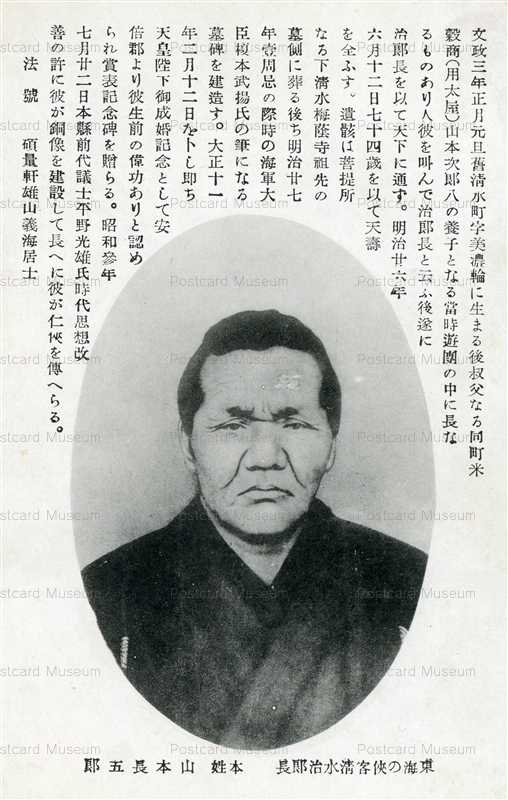 文政三年正月元旦舊清水町字美濃輪に生まる後叔父なる同町米
穀商(用太屋)山本次郎八の養子となる當時遊團の中に長な
るものあり人彼を叫んで治郎長と云ふ後遂に
治郎長を以て天下に通す。明治廿六年
六月十二日七十四歲を以て天壽
を全ふす。遺骸は菩提所
なる下淸水梅蔭寺祖先の
墓側に葬る後ち明治廿七
年壹周忌の際時の海軍大
臣榎本武揚氏の筆になる
墓碑を建造す。大正十一
年二月十二日を卜し即ち
天皇陛下御成婚記念として安
倍郡より彼生前の偉功ありと認め
られ賞表記念碑を贈らる。昭和參年
七月廿二日本縣前代議士平野光雄氏時代思想改
善の許に彼が銅像を建設して長へに彼が仁俠を傳へらる。
法號 碩量軒雄山義海居士
東海の俠客淸水治郎長 本姓 山本長五郎
Postcard Museum